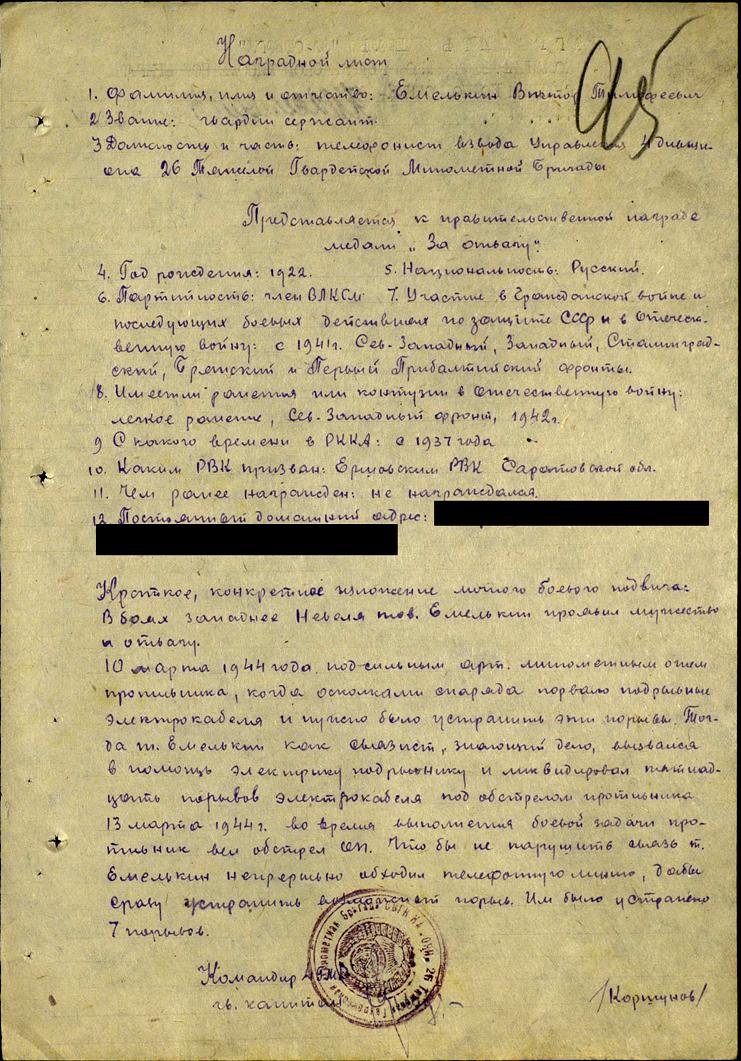 Наградной лист
95
1. Фамилия, имя и отчество: Емелькин Виктор Тимофеевич
2 Звание: гвардии сержант.
3 Должность и часть: телефонист взвода Управления 4 дивизи-
она 26 Тяжелой Гвардейской Минометной Бригады
Представляется к правительственной награде
медали „За отвагу".
4. Год рождения: 1922. 5. Национальность: Русский.
6. Партийность: член ВЛКСМ 7. Участие в Гражданской войне и
последующих боевых действиях по защите СССР и в Отечест-
венную войну: с 1941г. Сев-Западный, Западный, Сталинград-
ский, Брянский и Первый Прибалтийский фронты.
8. Имеет ли ранения или контузии в Отечественную войну:
легкое ранение, Сев-Западный фронт, 1942г.
9 С какого времени в РККА: с 1937 года
10. Каким РВК призван: Ершовским РВК Саратовской обл.
11. Чем ранее награжден: не награждался.
12. Постоянный домашний адрес:
Краткое, конкретное изложение личного боевого подвига:
В боях западнее Невеля тов. Емелькин проявил мужество
и отвагу.
10 марта 1944 года под сильным арт. минометным огнем
противника, когда осколками снаряда порвало подрывные
электрокабеля и нужно было устранить эти порывы. Тог-
да т. Емелькин как связист, знающий дело, вызвался
в помощь электрику подрывнику и ликвидировал пятнад-
цать порывов электрокабеля под обстрелом противника
13 марта 1944г. во время выполнения боевой задачи про-
тивник вел обстрел ОП. Что бы не нарушить связь т.
Емелькин непрерывно обходил телефонную линию, дабы
сразу устранить порыв. Им было устранено
7 порывов.
Командир
гв. капитан /Коршунов/